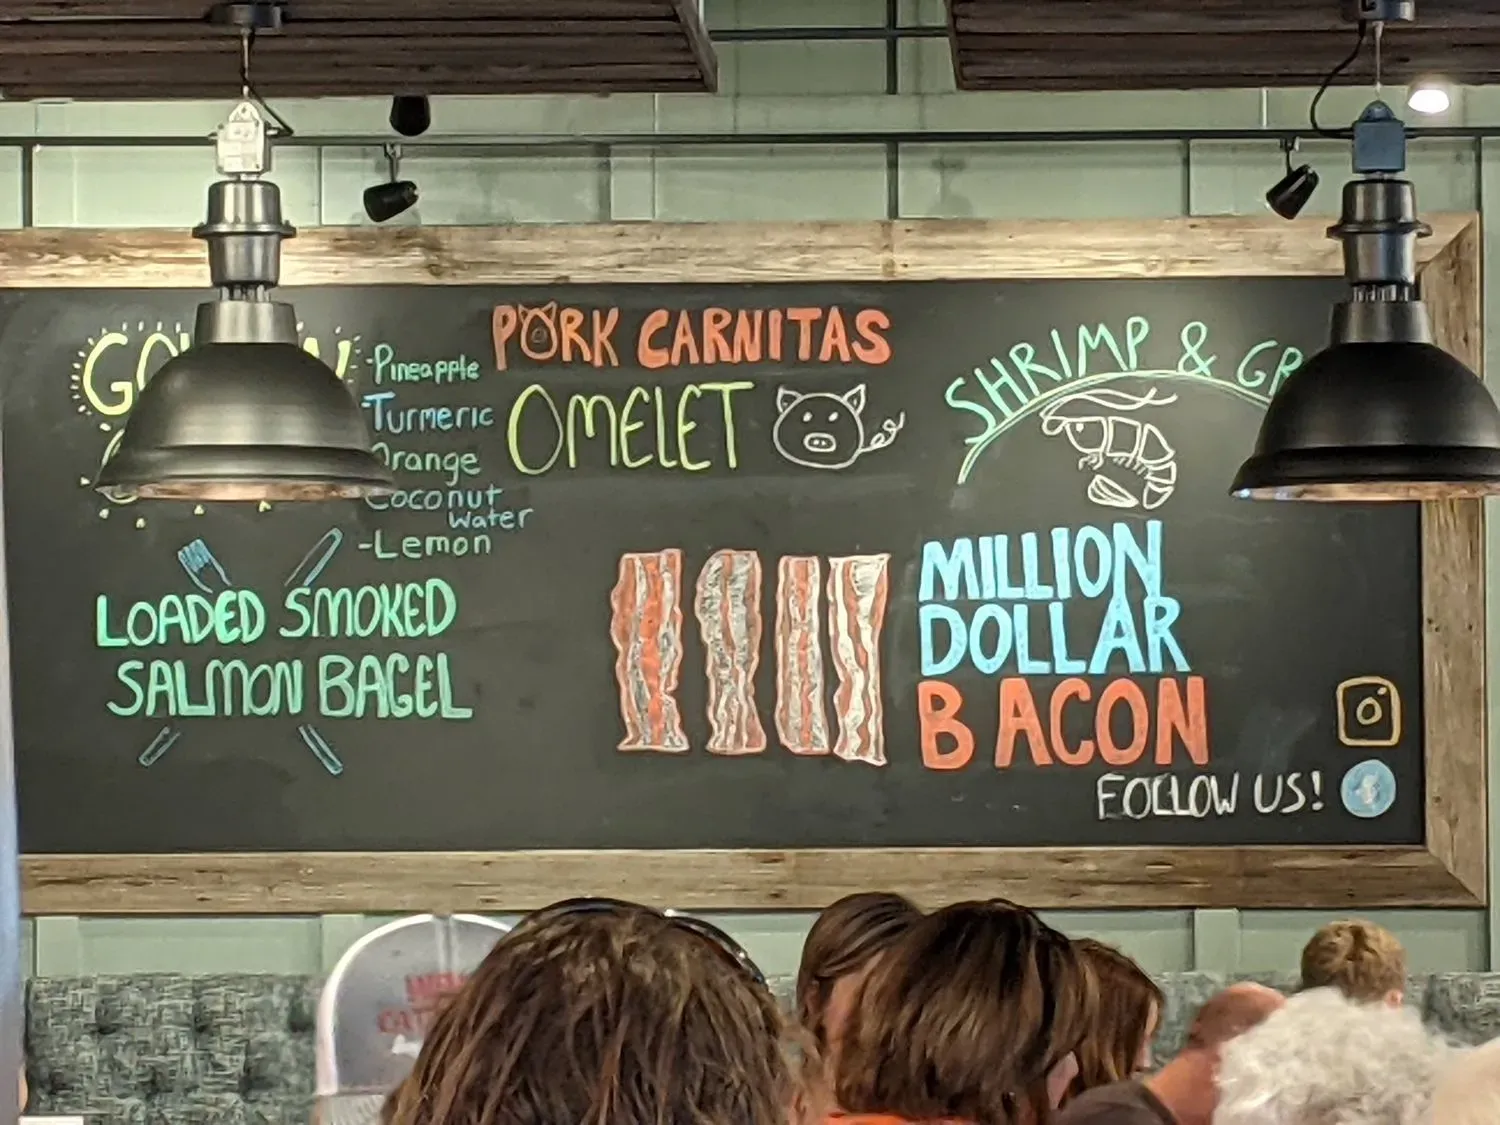 -Pineapple
-Turmeric
Orange
Coconut
Water
-Lemon
LOADED SMOKED
SALMON BAGEL
PORK CARNITAS
OMELET
SHRIMP &
MILLION
DOLLAR
BACON
FOLLOW US!